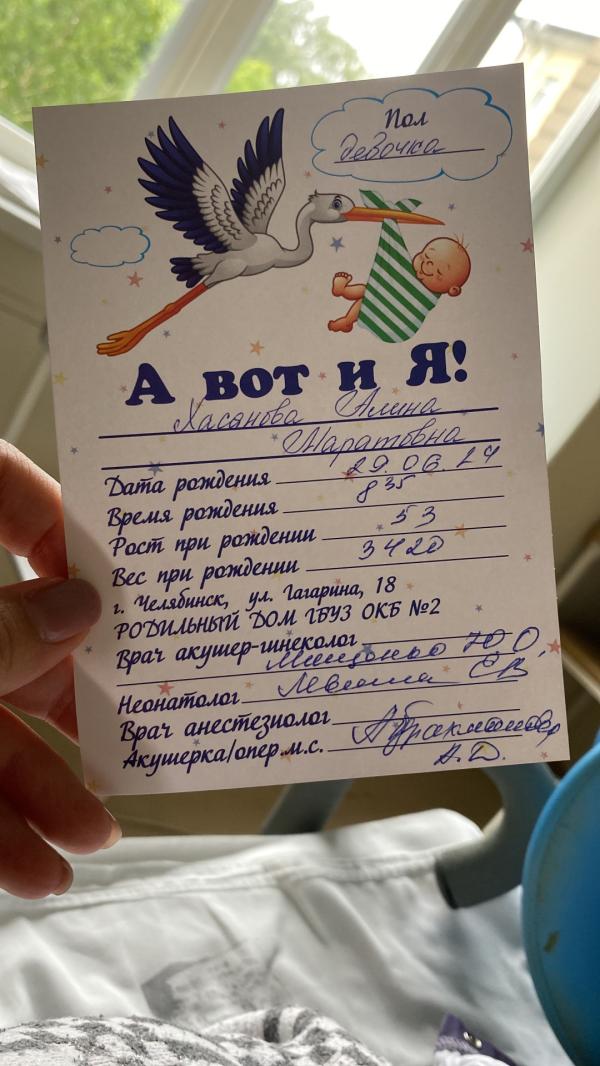 Пол
девочка
А вот и Я!
Хасанова Алина
Маратовна
Дата рождения 29.06.24
Время рождения 8 35
Рост при рождении 53
Вес при рождении 3420
г. Челябинск, ул. Гагарина, 18
РОДИЛЬНЫЙ ДОМ ГБУЗ ОКБ №2
Врач акушер-гинеколог
Ю О,
Неонатолог
Врач анестезиолог
Акушерка/опер.м.с.
А.Д.